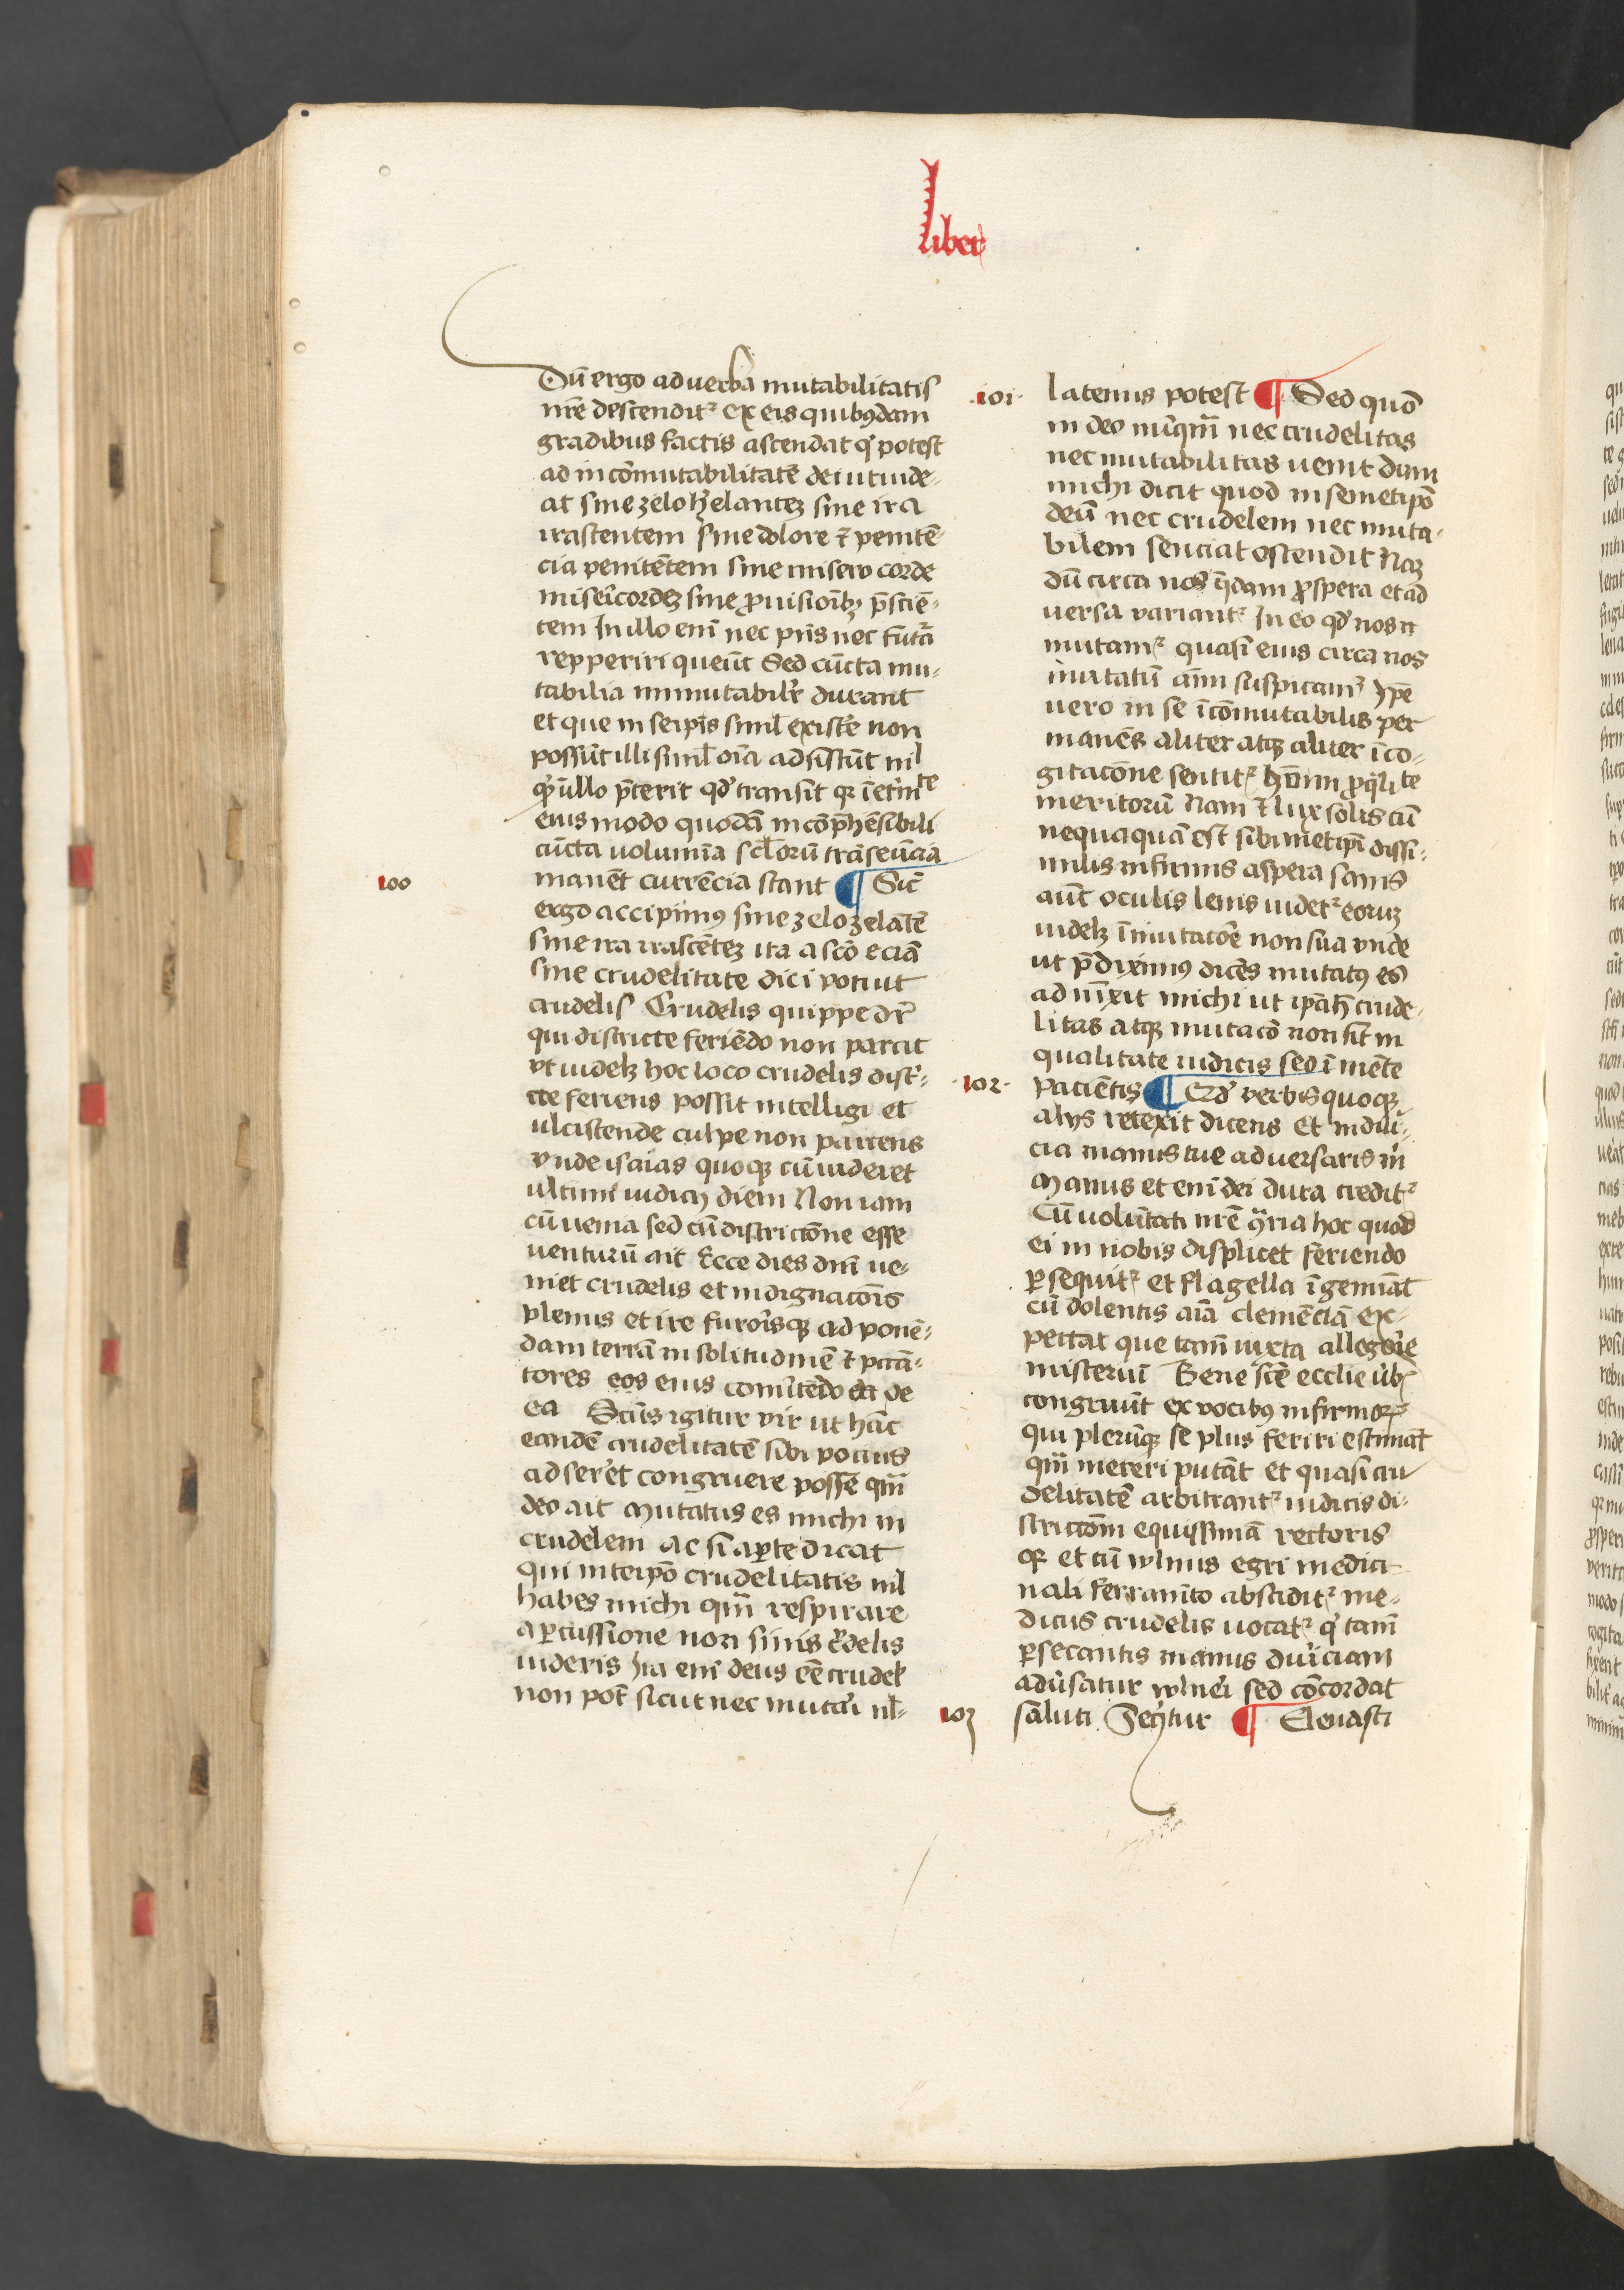 liber
Dū ergo ad uerba mutabilitatis
nr̄e descendit᷑ ex eis quibꝰdam
gradibus factis ascendat qͥ potest
ad incōmutabilitatē dei ut uide-
at sine zelo zelantez sine ira
irascentem sine dolore ⁊ penitē-
cia penitētem sine misero corde
misericordez sine ꝓuisioībꝫ p̄sciē-
tem In illo enī nec p̄tis nec futͣa
repperiri queūt Sed cūcta mu-
tabilia inmutabilīr durant
et que in seip̄is siml̄ existe͛ non
possūt illi siml̄ oīa adsistūt nil
qꝫ in illo p̄terit qd̛ transit qꝛ ī et͛nitͣte
eius modo quodā incōp̄hēsibili
cūcta uolumīa scl̄orū trāseūcia
100
manēt currēcia stant ¶ Sic̄
ergo accipimꝰ sine zelo zelātē
sine ira irascētez ita a scō eciā
sine crudelitate dici potuit
crudelis Crudelis quippe dr̄
qui districte feriēdo non parcit
vt uidelꝫ hoc loco crudelis dist͛-
cte feriens possit intelligi et
ulciscende culpe non parcens
vnde isaias quoqꝫ cū uideret
ultimi iudicij diem Non iam
cū uenia sed cū districtōne esse
uenturū ait Ecce dies dnī ue-
niet crudelis et indignacōīs
plenus et ire furorisqꝫ ad ponē-
dam terrā in solitudinē ⁊ pccā-
tores eos eius contͤendo de
ea Scūs igitur vir ut hāc
eandē crudelitatē sibi pocius
adseret congruere posse qm̄
deo ait Mutatus es michi in
crudelem Ac si aꝑte dicat
Qui in teip̄o crudelitatis nil
habes michi qm̄ respirare
a ꝑcussione non sinis c͛delis
uideris Ita enī deus eē crudel̛
non pōt sicut nec mutari ul̄-
101
latenus potest ¶ Sed quō
in deo nūqm̄ nec crudelitas
nec mutabilitas uenit dum
michi dicit quod in semetip̄o
deū nec crudelem nec muta-
bilem senciat ostendit Naꝫ
dū circa nos q̄dam ꝓspera et ad
uersa variant᷑ In eo qd̛ nos n
mutam᷑ quasi eius circa nos
mutatū aīm suspicam᷑ Ip̄e
uero in se īcōmutabilis per
manēs aliter atqꝫ aliter ī co-
gitacōne sentit᷑ hōim ꝓ q̄lite
meritorū Nam ⁊ lux solis cū
nequaquā est sibimetip̄i dissi-
milis infirmis aspera sanis
aūt oculis lenis uidet᷑ eoruꝫ
uidelꝫ īmutacōe non sua vnde
ut p̄diximꝰ dicēs mutatꝰ es
adiūxit michi ut ip̄a h crude-
litas atqꝫ mutacō non sit in
qualitate iudicis sed ī mēte
102
pacientis ¶ Qd̛ verbis quoqꝫ
alijs retexit dicens Et in duri-
cia manus tue aduersaris m̄
Manus et enī dei dura credit᷑
Cū uolūtati nr̄e ꝯtͣria hoc quod
ei in nobis displicet feriendo
ꝑsequit᷑ et flagella īgemināt
cū dolentis aīa clemēciā ex-
pectat que tam̄ iuxta allegorie
misteriū Bene scē ecclīe ūbꝫ
congruūt ex vocibꝰ infirmoꝝ
qui plerūqꝫ se plus feriri estimāt
qm̄ mereri putāt et quasi cru
delitatē arbitrant᷑ iudicis di-
strictōm equissimā rectoris
qꝛ et cū ulnus egri medici-
nali ferramīto abscidit᷑ me-
dicus crudelis uocat᷑ qͥ tam̄
ꝑsecantis manus duriciam
aduīsatur ulneri sed cōcordat
103
saluti Seqͥtur ¶ Eleuasti